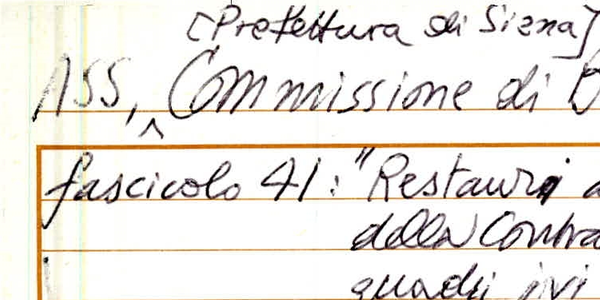 [Prefettura di Siena]
ASS, ^ Commissione di
fascicolo 41: "Restauri
della
quadri